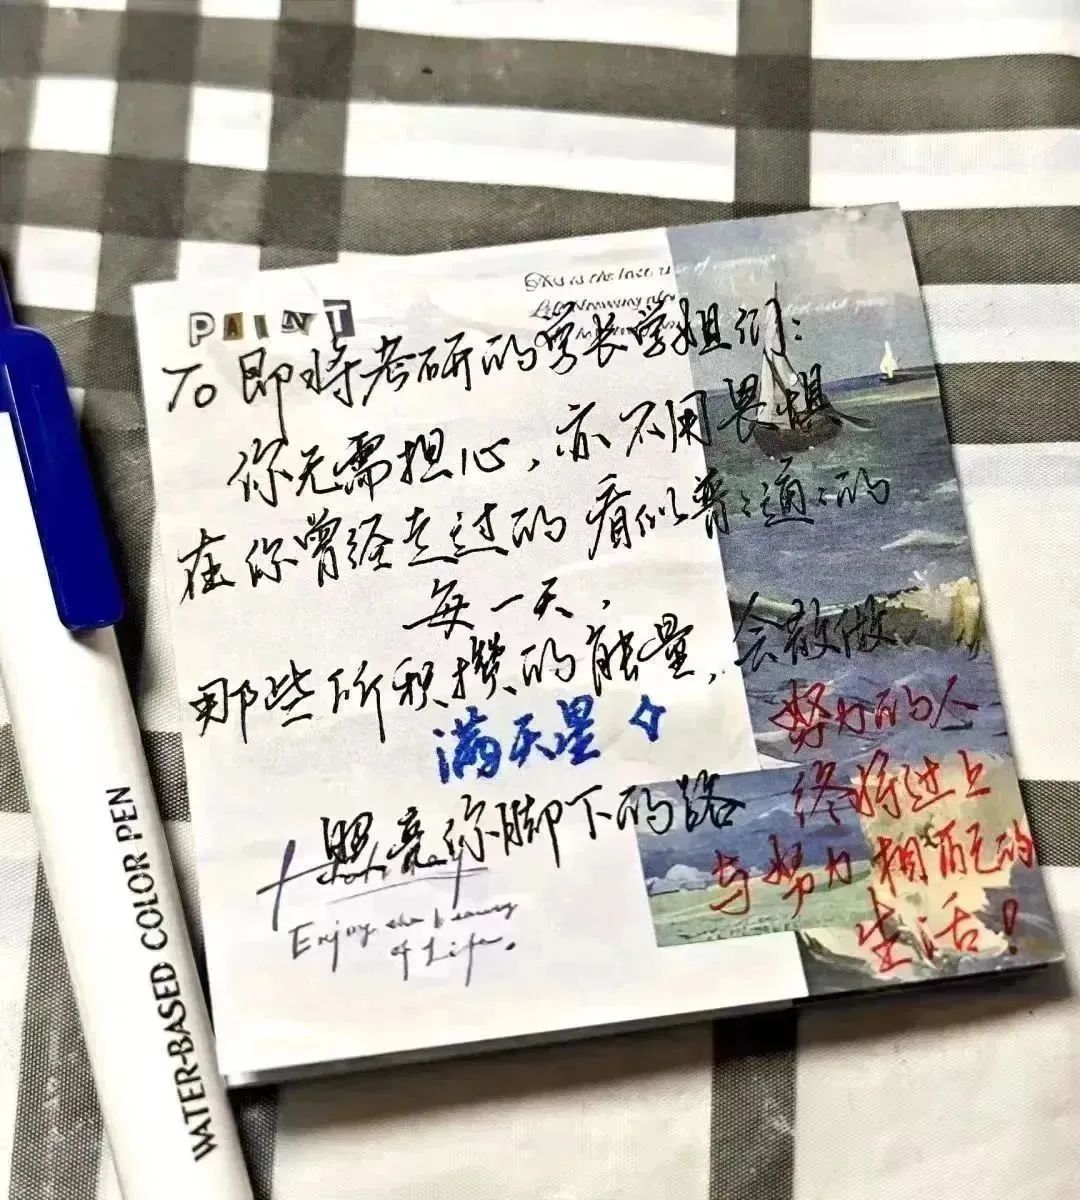 PAINT
To 即将考研的学长学姐们:
你无需担心,亦不用畏惧
在你曾经走过的看似普普通通的
每一天,
那些所积攒的能量,会散做
满天星
照亮你脚下的路
努力的人
终将过上
与努力相配的
生活!
Enjoy the beauty
of Life.
WATER-BASED COLOR PEN